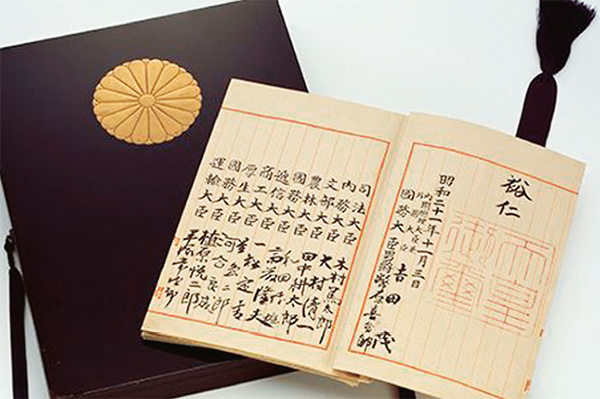 裕仁
天皇御璽
昭和二十一年十一月三日
内閣總理大臣兼
外務大臣 吉田茂
國務大臣 男爵 幣原喜重郎
司法大臣 木村篤太郎
内務大臣 大村清一
文部大臣 田中耕太郎
農林大臣 和田博雄
國務大臣 斎藤隆夫
遞信大臣 一松定吉
商工大臣
厚生大臣 河合良成
國務大臣 植原悦二郎
運輸大臣 平塚常次郎